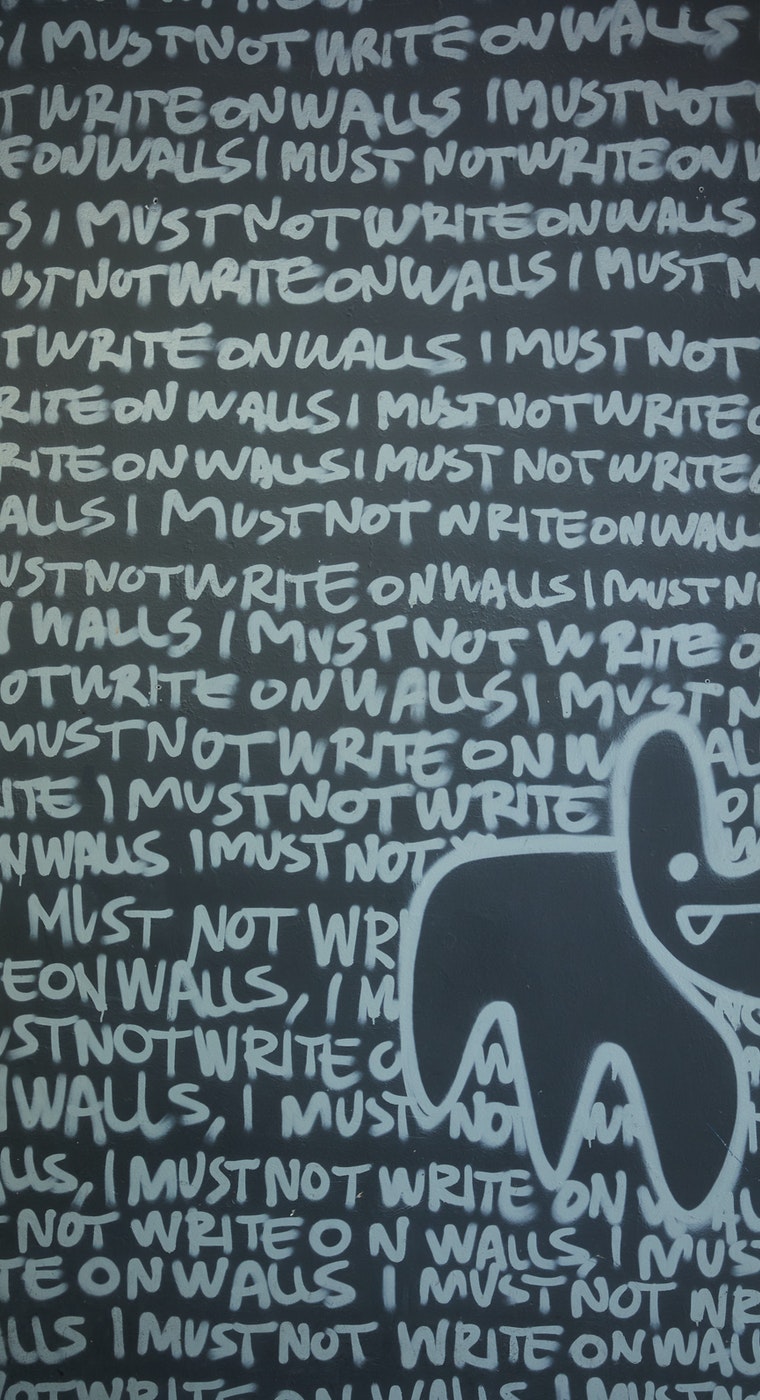 I MUST NOT WRITE ON WALLS
T WRITE ON WALLS I MUST NOT
E ON WALLS I MUST NOT WRITE ON W
S I MUST NOT WRITE ON WALLS
UST NOT WRITE ON WALLS I MUST N
T WRITE ON WALLS I MUST NOT
RITE ON WALLS I MUST NOT WRITE O
RITE ON WALLS I MUST NOT WRITE
ALLS I MUST NOT WRITE ON WALL
UST NOT WRITE ON WALLS I MUST N
WALLS I MUST NOT WRITE O
OT WRITE ON WALLS I MUST N
MUST NOT WRITE ON W AL
ITE I MUST NOT WRITE O
N WALLS I MUST NOT W
I MUST NOT WRI
E ON WALLS, I M
UST NOT WRITE O W
WALLS, I MUST NOT
LLS, I MUST NOT WRITE ON WAL
NOT WRITE ON WALLS, I MUS
TE ON WALLS I MUST NOT WR
LLS I MUST NOT WRITE ON WAL
OT WRITE ON WALLS I MUST